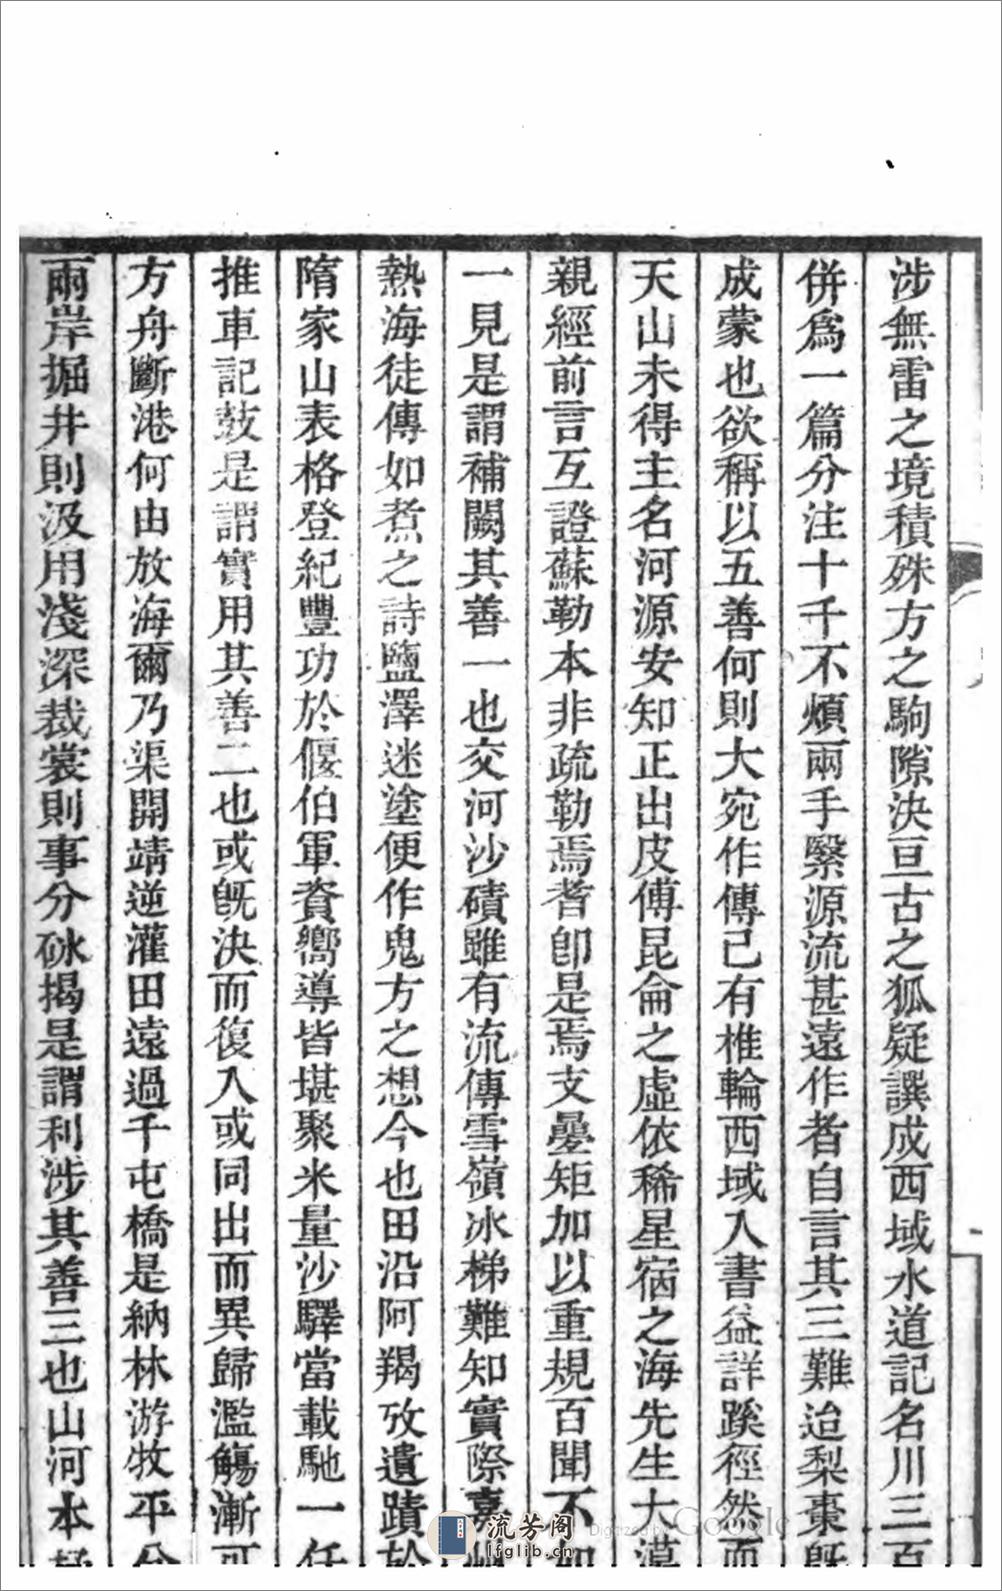 涉無雷之境積殊方之駒隙決亘古之狐疑譔成西域水道記名川三百
併爲一篇分注十千不煩兩手緊源流甚遠作者自言其三難迨梨棗旣
成蒙也欲稱以五善何則大宛作傳已有椎輪西域入書益詳蹊徑然而
天山未得主名河源安知正出皮傅昆侖之虛依稀星宿之海先生大漠
親經前言互證蘇勒本非疏勒焉耆卽是焉支疊矩加以重規百聞不如
一見是謂補闕其善一也交河沙磧雖有流傳雪嶺冰梯難知實際嘉州
熱海徒傳如煮之詩鹽澤迷塗便作鬼方之想今也田沿阿羯攷遺蹟於
隋家山表格登紀豐功於偃伯軍資嚮導皆堪聚米量沙驛當載馳一任
推車記鼓是謂實用其善二也或旣決而復入或同出而異歸濫觴漸可
方舟斷港何由放海爾乃渠開靖逆灌田遠過千屯橋是納林游牧平分
兩岸掘井則汲用淺深裁裳則事分砅揭是謂利涉其善三也山河本
流芳阁
lfglib.cn
Digitized by Google